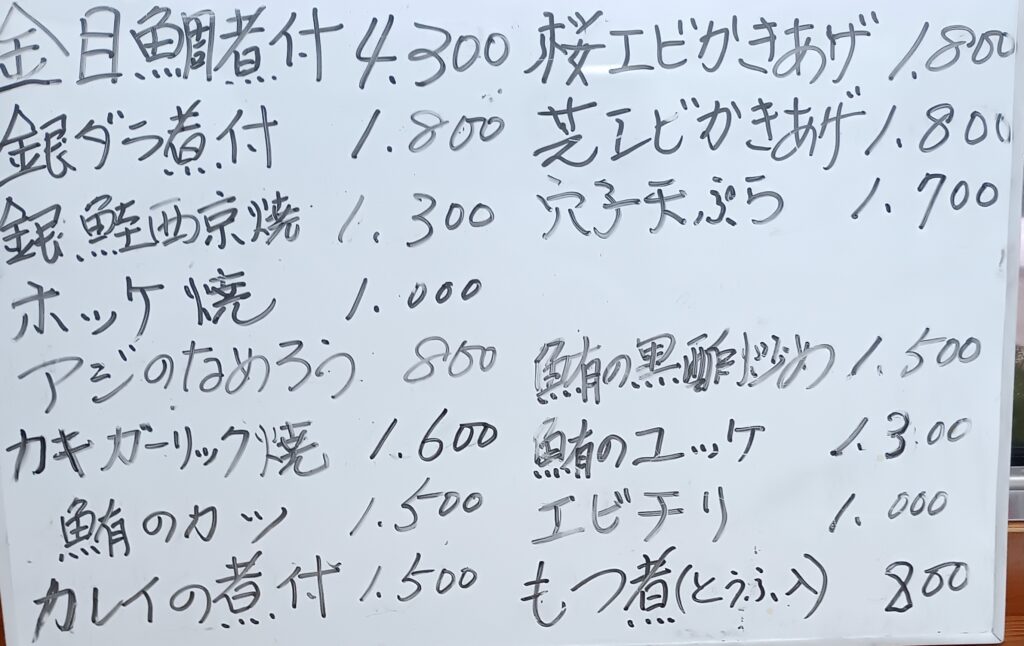 金目鯛煮付 4.300
銀ダラ煮付 1.800
銀鮭西京焼 1.300
ホッケ焼 1.000
アジのなめろう 800
カキガーリック焼 1.600
鮪のカツ 1.500
カレイの煮付 1.500
桜エビかきあげ 1.800
芝エビかきあげ 1.800
穴子天ぷら 1.700
鮪の黒酢炒め 1.500
鮪のユッケ 1.300
エビチリ 1.000
もつ煮(とうふ入) 800